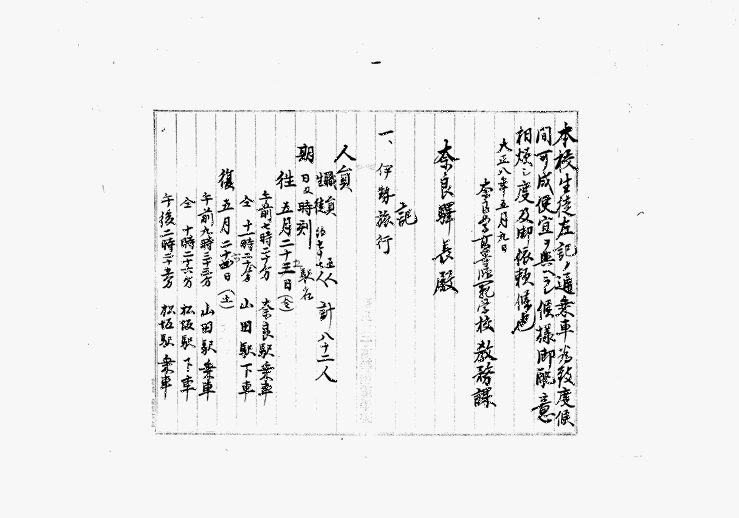 本校生徒左記ノ通乗車為致度候
間可成便宜ヲ與ヘラレ候様御配意
相煩シ度及御依頼候也
大正八年五月九日
奈良女子高等師範学校 教務課
奈良驛長殿
記
一、伊勢旅行
人員 職員 五人
生徒 七十七人 計 八十二人
期日及時刻 駅名
往 五月二十三日(金)
午前七時二十分 奈良駅乗車
仝 十一時 山田駅下車
復 五月二十四日(土)
午前九時三十三分 山田駅乗車
仝 十時二十六分 松坂駅下車
午後二時 松坂駅乗車